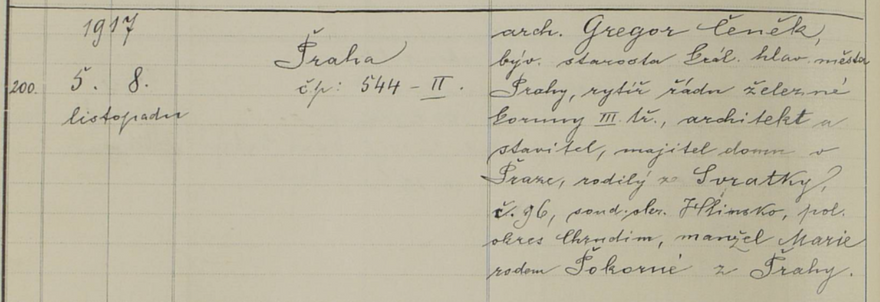 1917
200. 5. 8.
listopadu
Praha
čp: 544 - II.
arch. Gregor Čeněk,
býv. starosta král. hlav. města
Prahy, rytíř řádu železné
koruny III. tř., architekt a
stavitel, majitel domu v
Praze, rodilý ze Svratky,
č. 96, soud. okr. Hlinsko, pol.
okres Chrudim, manžel Marie
rodem Pokorné z Prahy.